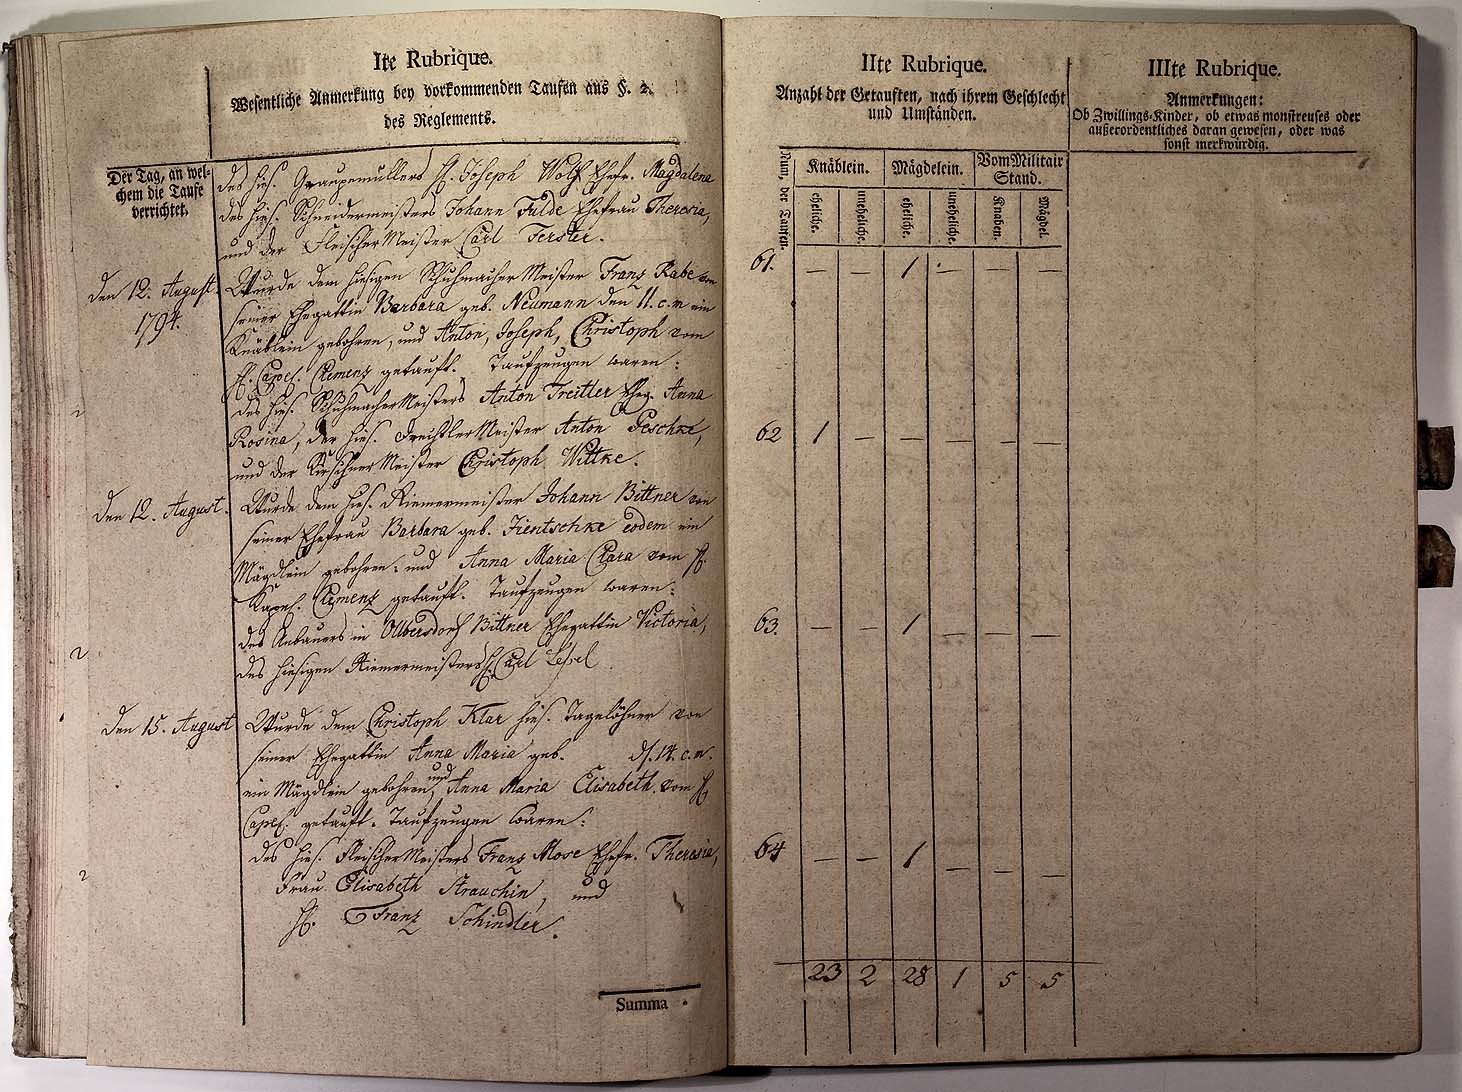 Ite Rubrique.
Wesentliche Anmerkung bey vorkommenden Taufen aus §. 2.
des Reglements.
Der Tag, an wel-
chem die Taufe
verrichtet.
des hies. Graupemüllers H. Joseph Wolf Ehefr. Magdalena
des hies. Schneidermeisters Johann Fulde Ehefrau Theresia,
und der Fleischer Meister Carl Ferster.
den 12. August.
1794.
Wurde dem hiesigen Schuhmacher Meister Franz Rabe von
seiner Ehegattin Barbara geb. Neumann den 11. c. m ein
Knäblein gebohren, und Anton, Joseph, Christoph vom
H. Capel. Clemenz getauft. Taufzeugen waren:
des hies. Schuhmacher Meisters Anton Treitler Eheg. Anna
Rosina, der hies. Drechsler Meister Anton Peschke,
und der Kirschner Meister Christoph Wittke.
den 12. August.
Wurde dem hies. Riemermeister Johann Bittner von
seiner Ehefrau Barbara geb. Zientschke eodem ein
Mägdlein gebohren, und Anna Maria Clara vom H.
Kapel. Clemenz getauft. Taufzeugen waren:
des Anbauers in Olbersdorf Bittner Ehegattin Victoria,
des hiesigen Riemermeisters H. Carl
den 15. August
Wurde dem Christoph Klar hies. Tagelöhner von
seiner Ehegattin Anna Maria geb. d. 14. c. m.
ein Mägdlein gebohren, und Anna Maria Elisabeth vom H
Capel. getauft. Taufzeugen waren:
des hies. Fleischer Meisters Franz Mose Ehefr. Theresia,
Frau Elisabeth Strauchin, und
H. Franz Schindler.
Summa
IIte Rubrique.
Anzahl der Getauften, nach ihrem Geschlecht
und Umständen.
Num. der Taufen.
Knäblein. Mägdelein. Vom Militair
Stand.
eheliche. uneheliche. eheliche. uneheliche. Knaben. Mägdel.
61. — — 1 — — —
62 1 — — — — —
63. — — 1 — — —
64 — — 1 — — —
23 2 28 1 5 5
IIIte Rubrique.
Anmerkungen:
Ob Zwillings-Kinder, ob etwas monstreuses oder
außerordentliches daran gewesen, oder was
sonst merkwürdig.